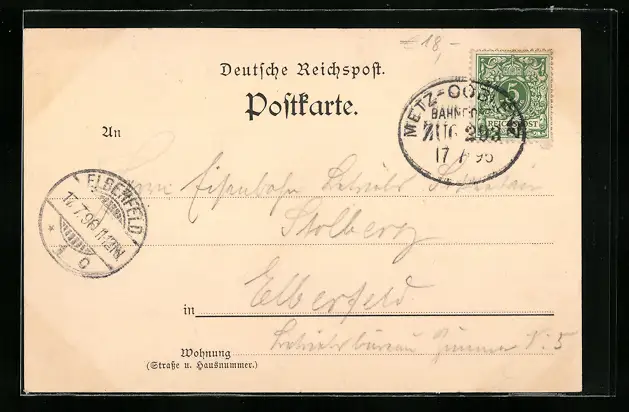 € 18,-
Deutsche Reichspost.
Postkarte.
5
REICHSPOST
METZ-COBLENZ
BAHNPOST
ZUG 293
17 7 98
An
Herrn Eisenbahn Betriebs Sekretair
Stolberg
ELBERFELD
17.7.98 11-12N
in Elberfeld
Betriebsbureau Zimmer N: 5
Wohnung
(Straße u. Hausnummer.)